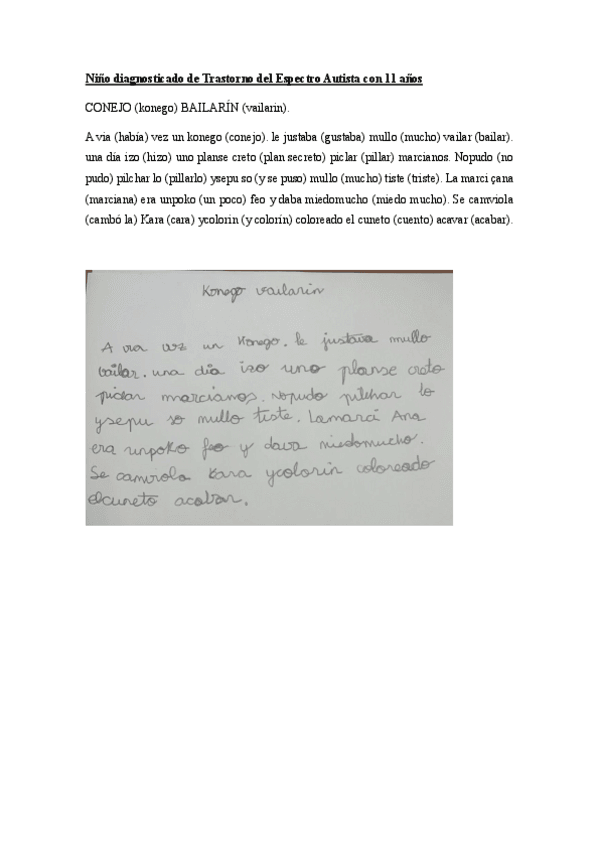 Niño diagnosticado de Trastorno del Espectro Autista con 11 años
CONEJO (konego) BAILARÍN (vailarin).
A via (había) vez un konego (conejo). le justaba (gustaba) mullo (mucho) vailar (bailar).
una día izo (hizo) uno planse creto (plan secreto) piclar (pillar) marcianos. Nopudo (no
pudo) pilchar lo (pillarlo) ysepu so (y se puso) mullo (mucho) tiste (triste). La marci çana
(marciana) era unpoko (un poco) feo y daba miedomucho (miedo mucho). Se camviola
(cambó la) Kara (cara) ycolorin (y colorín) coloreado el cuneto (cuento) acavar (acabar).
Konego vailarin
A via vez un Konego. le justava mullo
vailar. una día izo uno planse creto
piclar marcianos. Nopudo pilchar lo
ysepu so mullo tiste. Lamarci Ana
era unpoko feo y dava miedomucho.
Se camviola Kara ycolorin coloreado
elcuneto acabar.